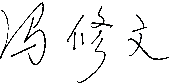 冯修文